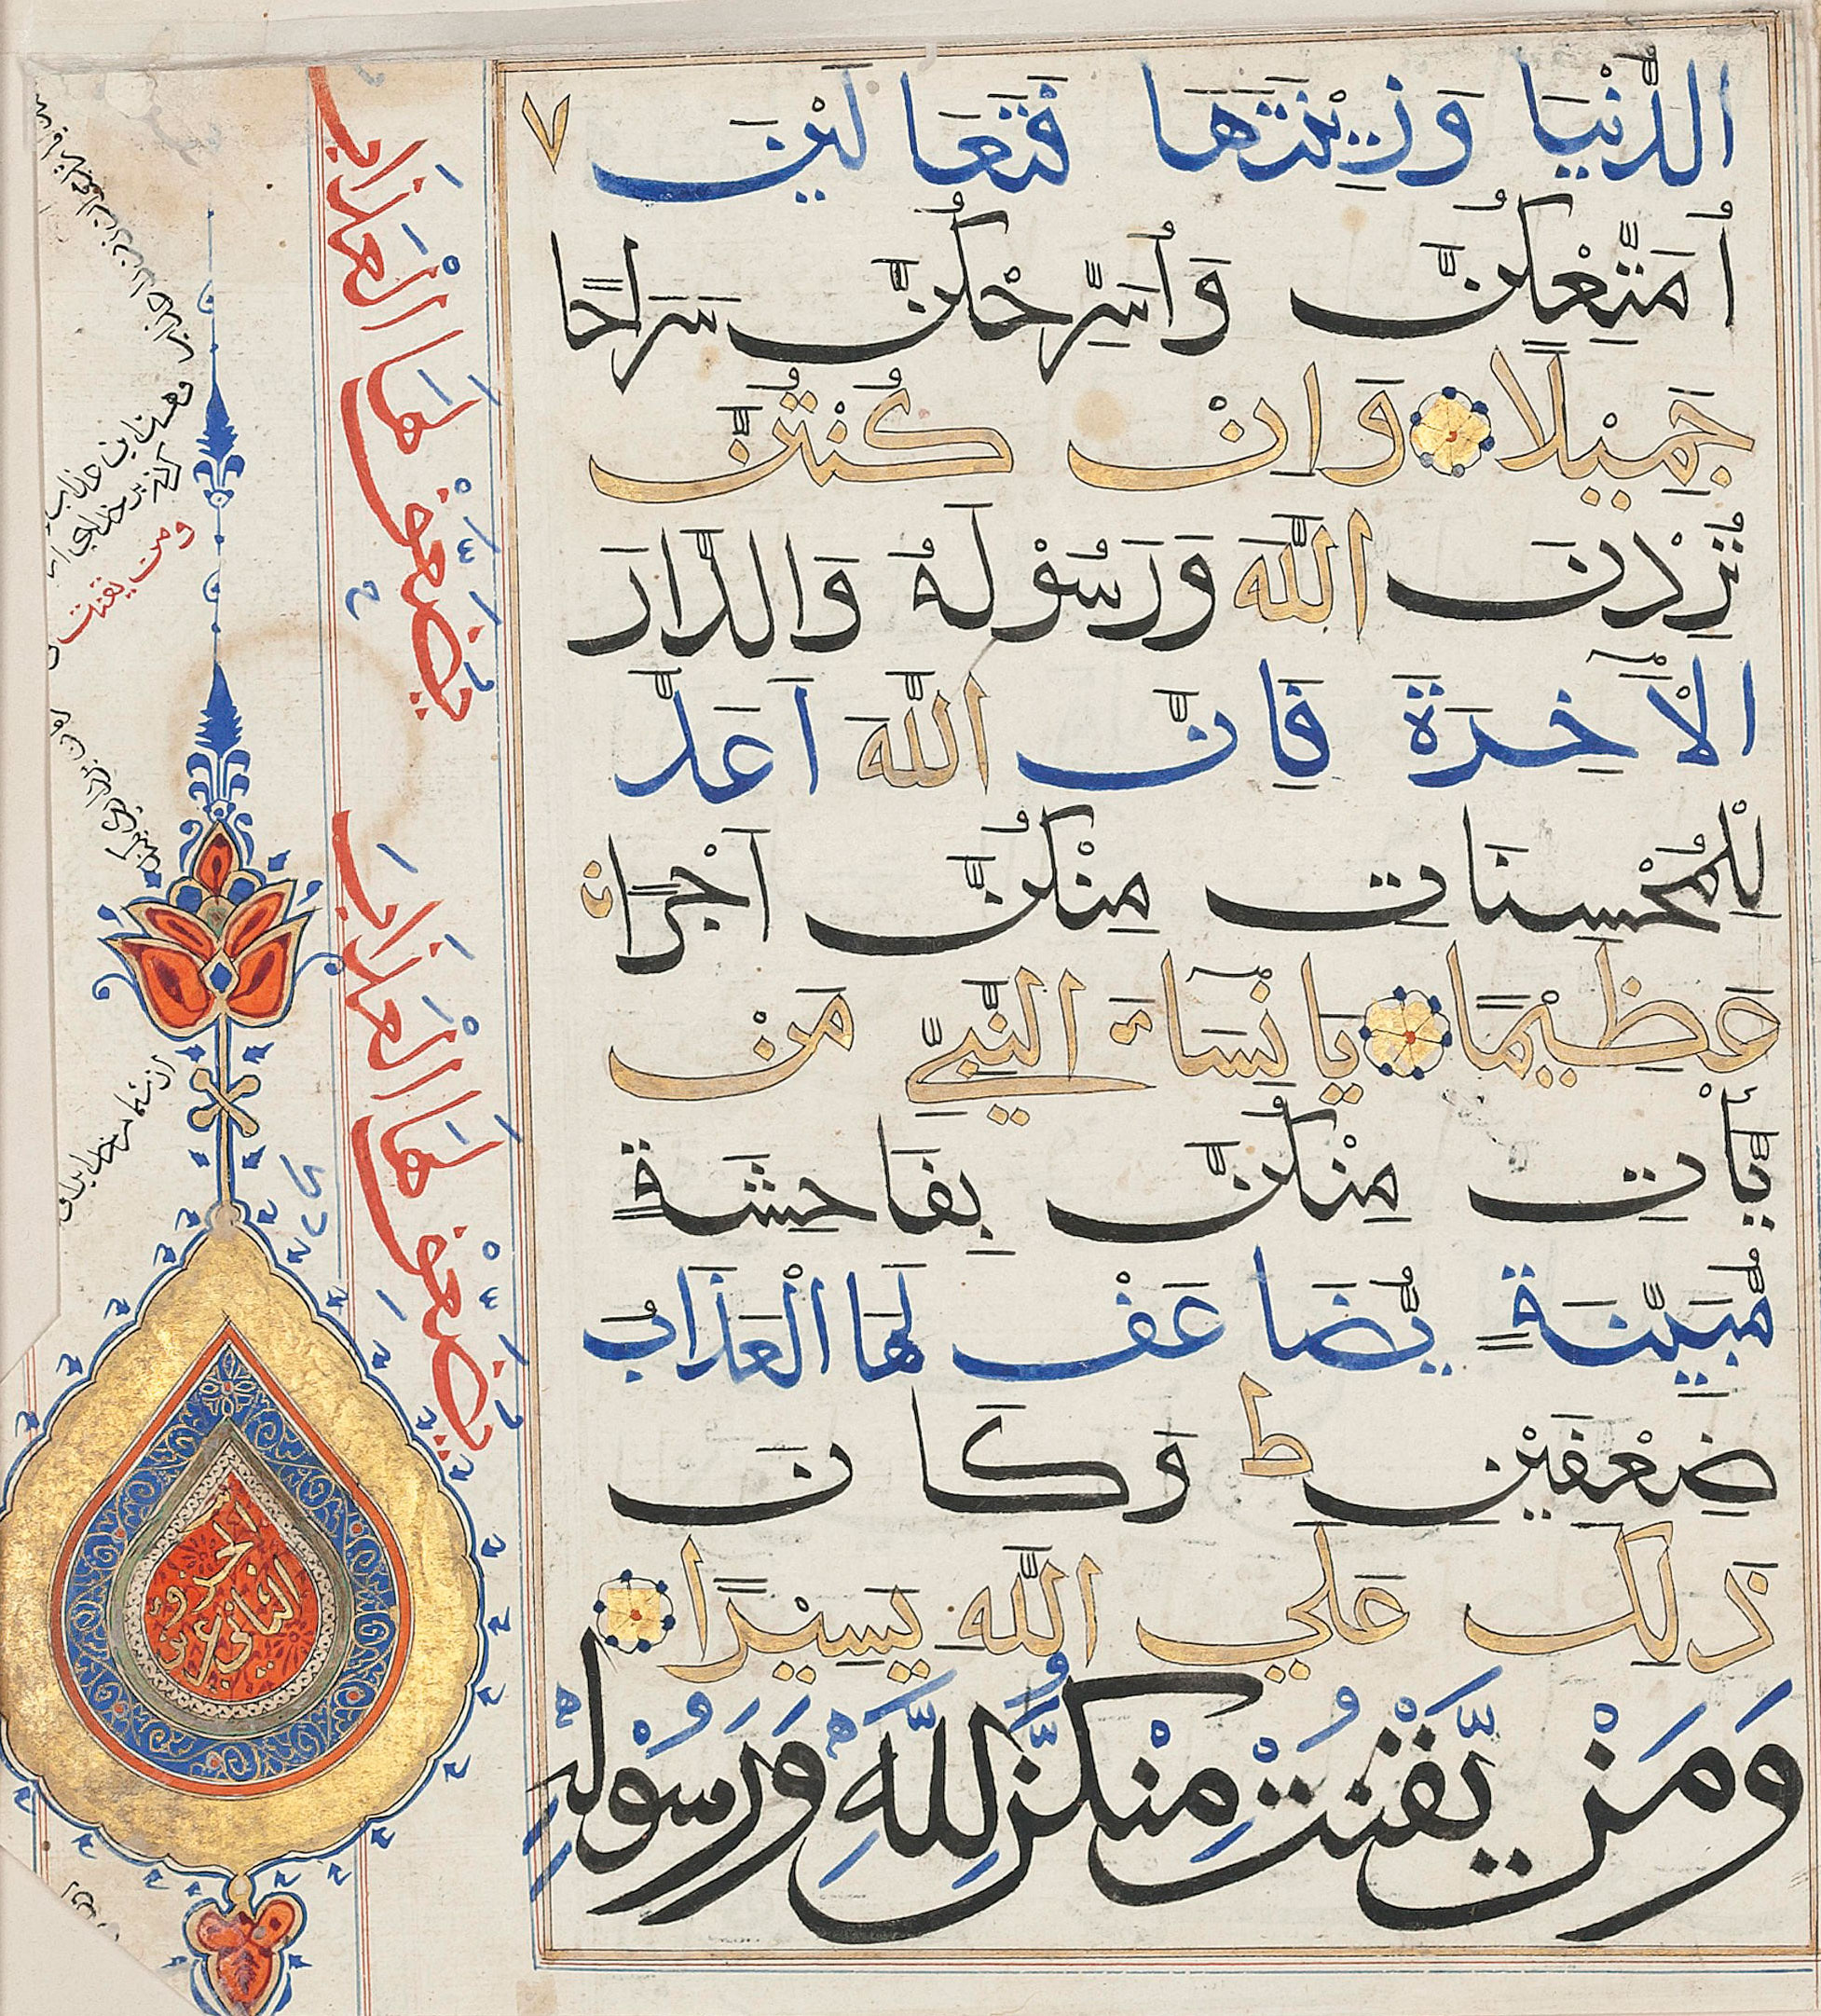 الدُّنْيَا وَزِيْنَتَهَا فَتَعَالَيْنَ
٧
اُمَتِّعْكُنَّ وَاُسَرِّحْكُنَّ سَرَاحًا
جَمِيْلًا وَاِنْ كُنْتُنَّ
تُرِدْنَ اللّٰهَ وَرَسُوْلَهُ وَالدَّارَ
الْاٰخِرَةَ فَاِنَّ اللّٰهَ اَعَدَّ
لِلْمُحْسِنَاتِ مِنْكُنَّ اَجْرًا
عَظِيْمًا يَا نِسَاءَ النَّبِيِّ مَنْ
يَّأْتِ مِنْكُنَّ بِفَاحِشَةٍ
مُّبَيِّنَةٍ يُّضَاعَفْ لَهَا الْعَذَابُ
ضِعْفَيْنِ ط وَكَانَ
ذَلِكَ عَلَي اللّٰهِ يَسِيْرًا
وَمَنْ يَّقْنُتْ مِنْكُنَّ لِلّٰهِ وَرَسُوْلِهٖ
يُضَعَّفْ لَهَا الْعَذَابَ
يُضَعَّفْ لَهَا الْعَذَابَ
ومن يقنت
الجزو
الثاني
و
عشرون